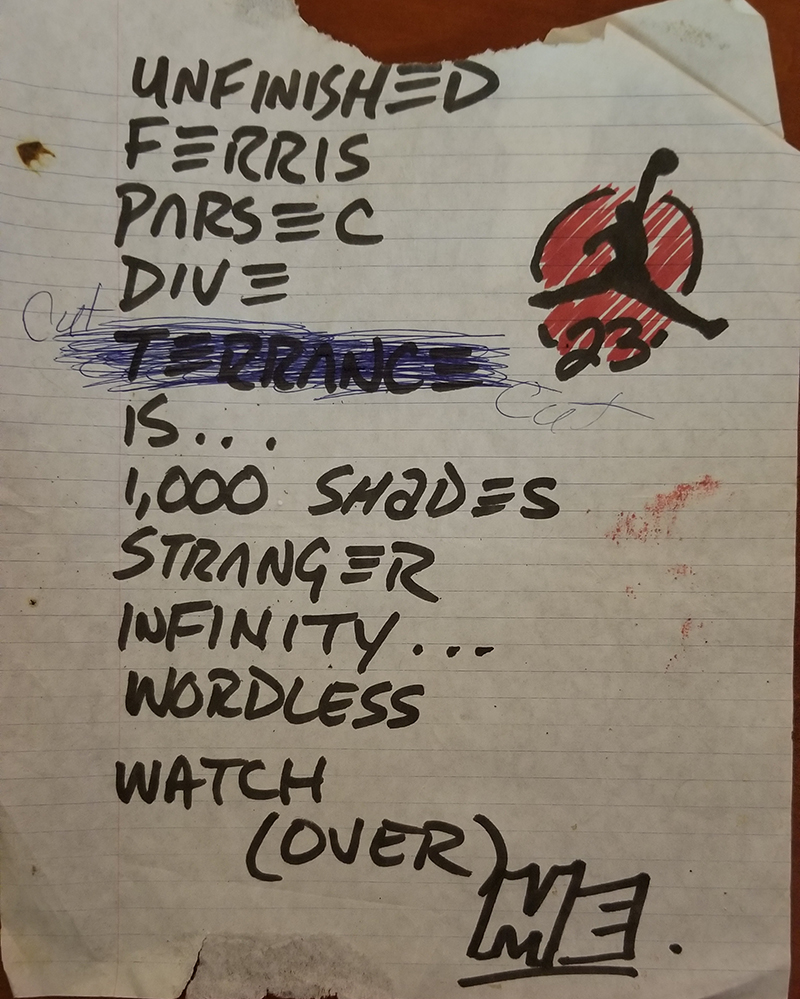 UNFINISHED
FERRIS
PARSEC
DIVE
'23'
Cut
TERRANCE
Cut
IS...
1,000 SHaDES
STRANGER
INFINITY...
WORDLESS
WATCH
(OVER)
ME.